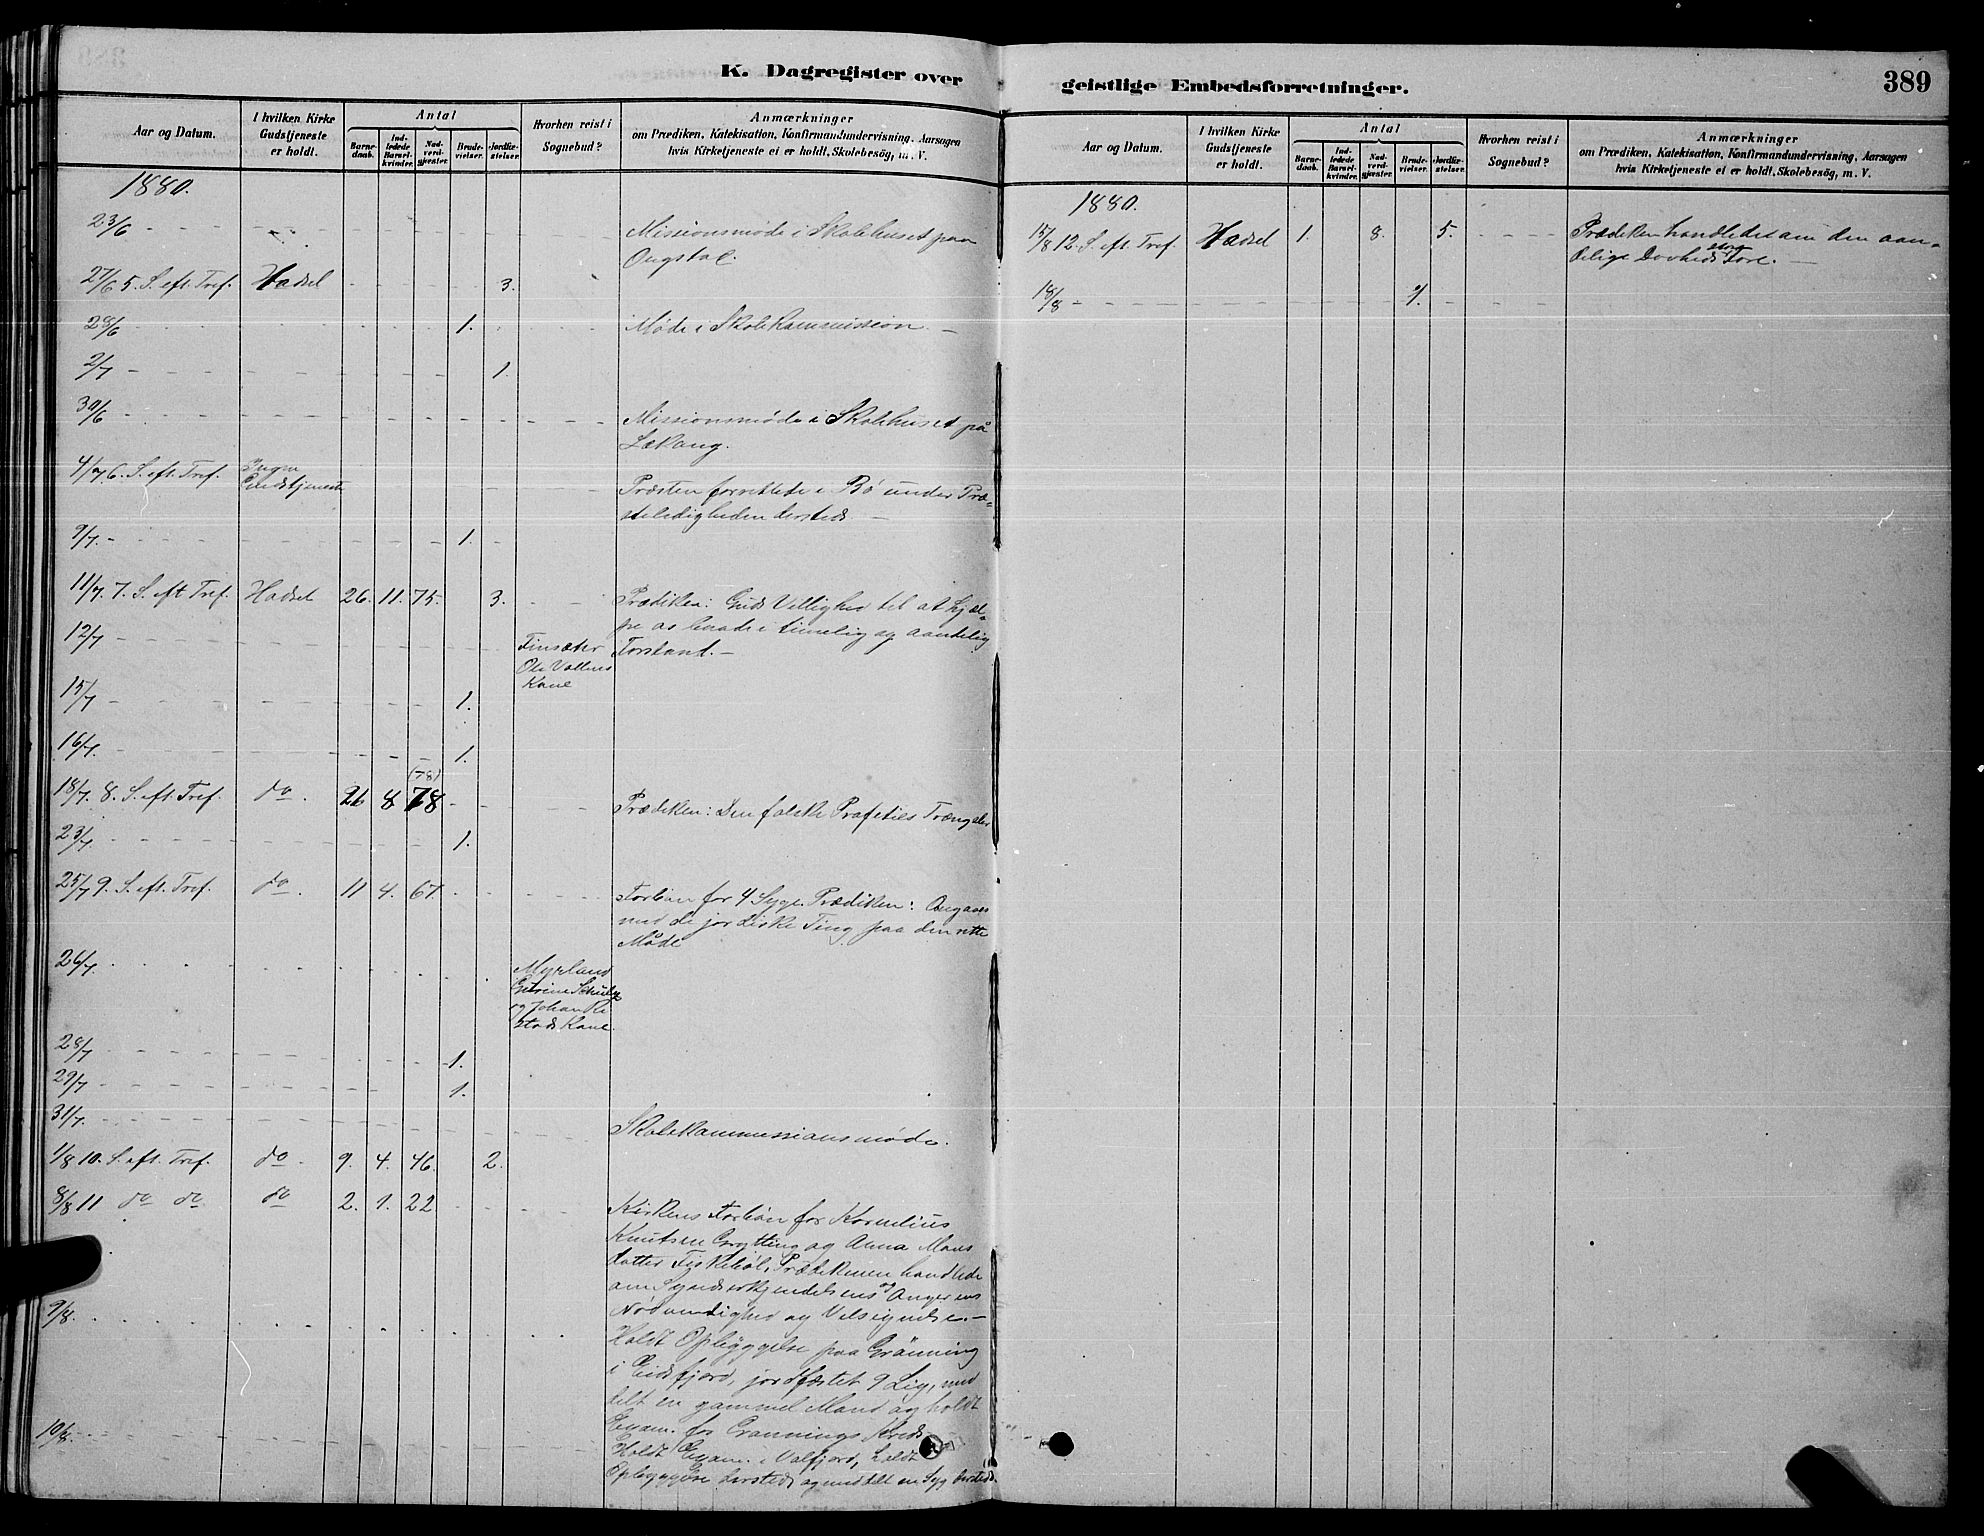 K. Dagregister over
Aar og Datum.
I hvilken Kirke Gudstjeneste er holdt.
Antal
Barne-daab.
Ind-ledede Barsel-kvinder.
Nad-verd-gjester.
Brude-vielser.
Jordfæ-stelser.
Hvorhen reist i Sognebud?
Anmærkninger
om Prædiken, Katekisation, Konfirmandundervisning, Aarsagen
hvis Kirketjeneste ei er holdt, Skolebesög, m. V.
1880.
23/6 Missionsmøde i Skolehuset paa
27/6 5. S. eft. Tref. Hadsel 3.
28/6 1. Møde i Skolekommission.
2/7 1.
30/6 Missionsmøde i Skolehuset på
Lekang.
4/7 6. S. eft. Tref. Ingen Gudstjeneste Præsten forrettede i Bø under Præ-
steledigheden dersteds
9/7. 1.
11/7. 7. S. eft Tref. Hadsel 26. 11. 75. 3. Prædiken: Guds Villighed til at hjæl-
pe os baade i timelig og aandelig
Forstand.
12/7 Finsæter
Ole
Kone
15/7 1.
16/7. 1.
(78)
18/7. 8. S. eft. Tref. do. 26 8 78 Prædiken: Den falske Profeties
23/7 1.
25/7 9. S. eft. Tref. do. 11 4. 67. Forbøn for 4 Syge. Prædiken:
med de jordiske Ting paa den rette
Måde
26/7 Myrland
og Johan
stads Kone.
28/7 1.
29/7 1.
31/7. Skolekommissionsmøde.
1/8 10. S. eft. Tref. do. 9. 4. 46. 2.
8/8 11 do do do 2. 1. 22 Kirkens Forbøn for Kornelius
Knutsen Grytting og Anna Mons
datter Fiskebøl. Prædikenen handlede
om Syndserkjendelsens og Angerens
Nødvendighed og Velsignelse.
9/8. Holdt Opbyggelse paa Grønning
i Eidsfjord, jordfæstet 9 Lig, med
delt en gammel Mand og holdt
Exam. for Grønnings Kreds
10/8. Holdt Exam. i Valfjord, holdt
Opbyggelse dersteds og meddelt en Syg dersteds.
geistlige Embedsforretninger.
389
Aar og Datum.
I hvilken Kirke Gudstjeneste er holdt.
Antal
Barne-daab.
Ind-ledede Barsel-kvinder.
Nad-verd-gjester.
Brude-vielser.
Jordfæ-stelser.
Hvorhen reist i Sognebud?
Anmærkninger
om Prædiken, Katekisation, Konfirmandundervisning, Aarsagen
hvis Kirketjeneste ei er holdt, Skolebesög, m. V.
1880.
15/8 12. S. eft. Tref. Hadsel 1. 8. 5. Prædiken handlede om den aan-
delige Døvheds store Fare.
18/8 1.